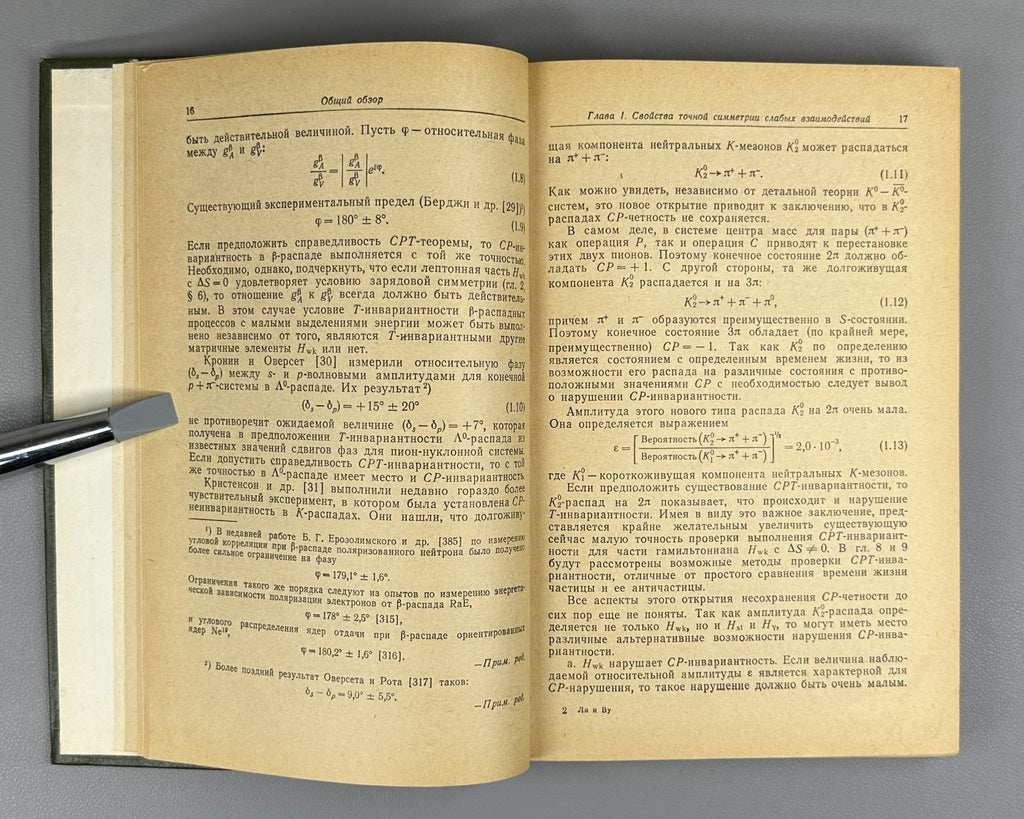 16
Общий обзор
быть действительной величиной. Пусть φ — относительная фаза
между g_A^β и g_V^β:
g_A^β / g_V^β = | g_A^β / g_V^β | e^{iφ}. (1.8)
Существующий экспериментальный предел (Берджи и др. [29]¹)
φ = 180° ± 8°. (1.9)
Если предположить справедливость CPT-теоремы, то CP-ин-
вариантность в β-распаде выполняется с той же точностью.
Необходимо, однако, подчеркнуть, что если лептонная часть H_wk
с ΔS = 0 удовлетворяет условию зарядовой симметрии (гл. 2,
§ 6), то отношение g_A^β к g_V^β всегда должно быть действитель-
ным. В этом случае условие T-инвариантности β-распадных
процессов с малыми выделениями энергии может быть выпол-
нено независимо от того, являются T-инвариантными другие
матричные элементы H_wk или нет.
Кронин и Оверсет [30] измерили относительную фазу
(δ_s — δ_p) между s- и p-волновыми амплитудами для конечной
p + π⁻-системы в Λ⁰-распаде. Их результат ²)
(δ_s — δ_p) = + 15° ± 20° (1.10)
не противоречит ожидаемой величине (δ_s — δ_p) = +7°, которая
получена в предположении T-инвариантности Λ⁰-распада из
известных значений сдвигов фаз для пион-нуклонной системы.
Если допустить справедливость CPT-инвариантности, то с той
же точностью в Λ⁰-распаде имеет место и CP-инвариантность
Кристенсон и др. [31] выполнили недавно гораздо более
чувствительный эксперимент, в котором была установлена CP-
неинвариантность в K-распадах. Они нашли, что долгоживу-
¹) В недавней работе Б. Г. Ерозолимского и др. [385] по измерению
угловой корреляции при β-распаде поляризованного нейтрона было получено
более сильное ограничение на фазу
φ = 179,1° ± 1,6°.
Ограничения такого же порядка следуют из опытов по измерению энергети-
ческой зависимости поляризации электронов от β-распада RaE,
φ = 178° ± 2,5° [315],
и углового распределения ядер отдачи при β-распаде ориентированных
ядер Ne¹⁹,
φ = 180,2° ± 1,6° [316].
— Прим. ред.
²) Более поздний результат Оверсета и Рота [317] таков:
δ_s — δ_p = 9,0° ± 5,5°.
— Прим. ред.
Глава 1. Свойства точной симметрии слабых взаимодействий 17
щая компонента нейтральных K-мезонов K₂⁰ может распадаться
на π⁺ + π⁻:
K₂⁰ → π⁺ + π⁻. (1.11)
Как можно увидеть, независимо от детальной теории K⁰ — K̄⁰-
систем, это новое открытие приводит к заключению, что в K₂⁰-
распадах CP-четность не сохраняется.
В самом деле, в системе центра масс для пары (π⁺ + π⁻)
как операция P, так и операция C приводят к перестановке
этих двух пионов. Поэтому конечное состояние 2π должно об-
ладать CP = + 1. С другой стороны, та же долгоживущая
компонента K₂⁰ распадается и на 3π:
K₂⁰ → π⁺ + π⁻ + π⁰, (1.12)
причем π⁺ и π⁻ образуются преимущественно в S-состоянии.
Поэтому конечное состояние 3π обладает (по крайней мере,
преимущественно) CP = — 1. Так как K₂⁰ по определению
является состоянием с определенным временем жизни, то из
возможности его распада на различные состояния с противо-
положными значениями CP с необходимостью следует вывод
о нарушении CP-инвариантности.
Амплитуда этого нового типа распада K₂⁰ на 2π очень мала.
Она определяется выражением
ε = [ Вероятность (K₂⁰ → π⁺ + π⁻) / Вероятность (K₁⁰ → π⁺ + π⁻) ]^{1/2} = 2,0 · 10⁻³, (1.13)
где K₁⁰ — короткоживущая компонента нейтральных K-мезонов.
Если предположить существование CPT-инвариантности, то
K₂⁰-распад на 2π показывает, что происходит и нарушение
T-инвариантности. Имея в виду это важное заключение, пред-
ставляется крайне желательным увеличить существующую
сейчас малую точность проверки выполнения CPT-инвариант-
ности для части гамильтониана H_wk с ΔS ≠ 0. В гл. 8 и 9
будут рассмотрены возможные методы проверки CPT-инва-
риантности, отличные от простого сравнения времени жизни
частицы и ее античастицы.
Все аспекты этого открытия несохранения CP-четности до
сих пор еще не поняты. Так как амплитуда K₂⁰-распада опре-
деляется не только H_wk, но и H_st и H_γ, то могут иметь место
различные альтернативные возможности нарушения CP-инва-
риантности.
а. H_wk нарушает CP-инвариантность. Если величина наблю-
даемой относительной амплитуды ε является характерной для
CP-нарушения, то такое нарушение должно быть очень малым.
2 Ли и Ву